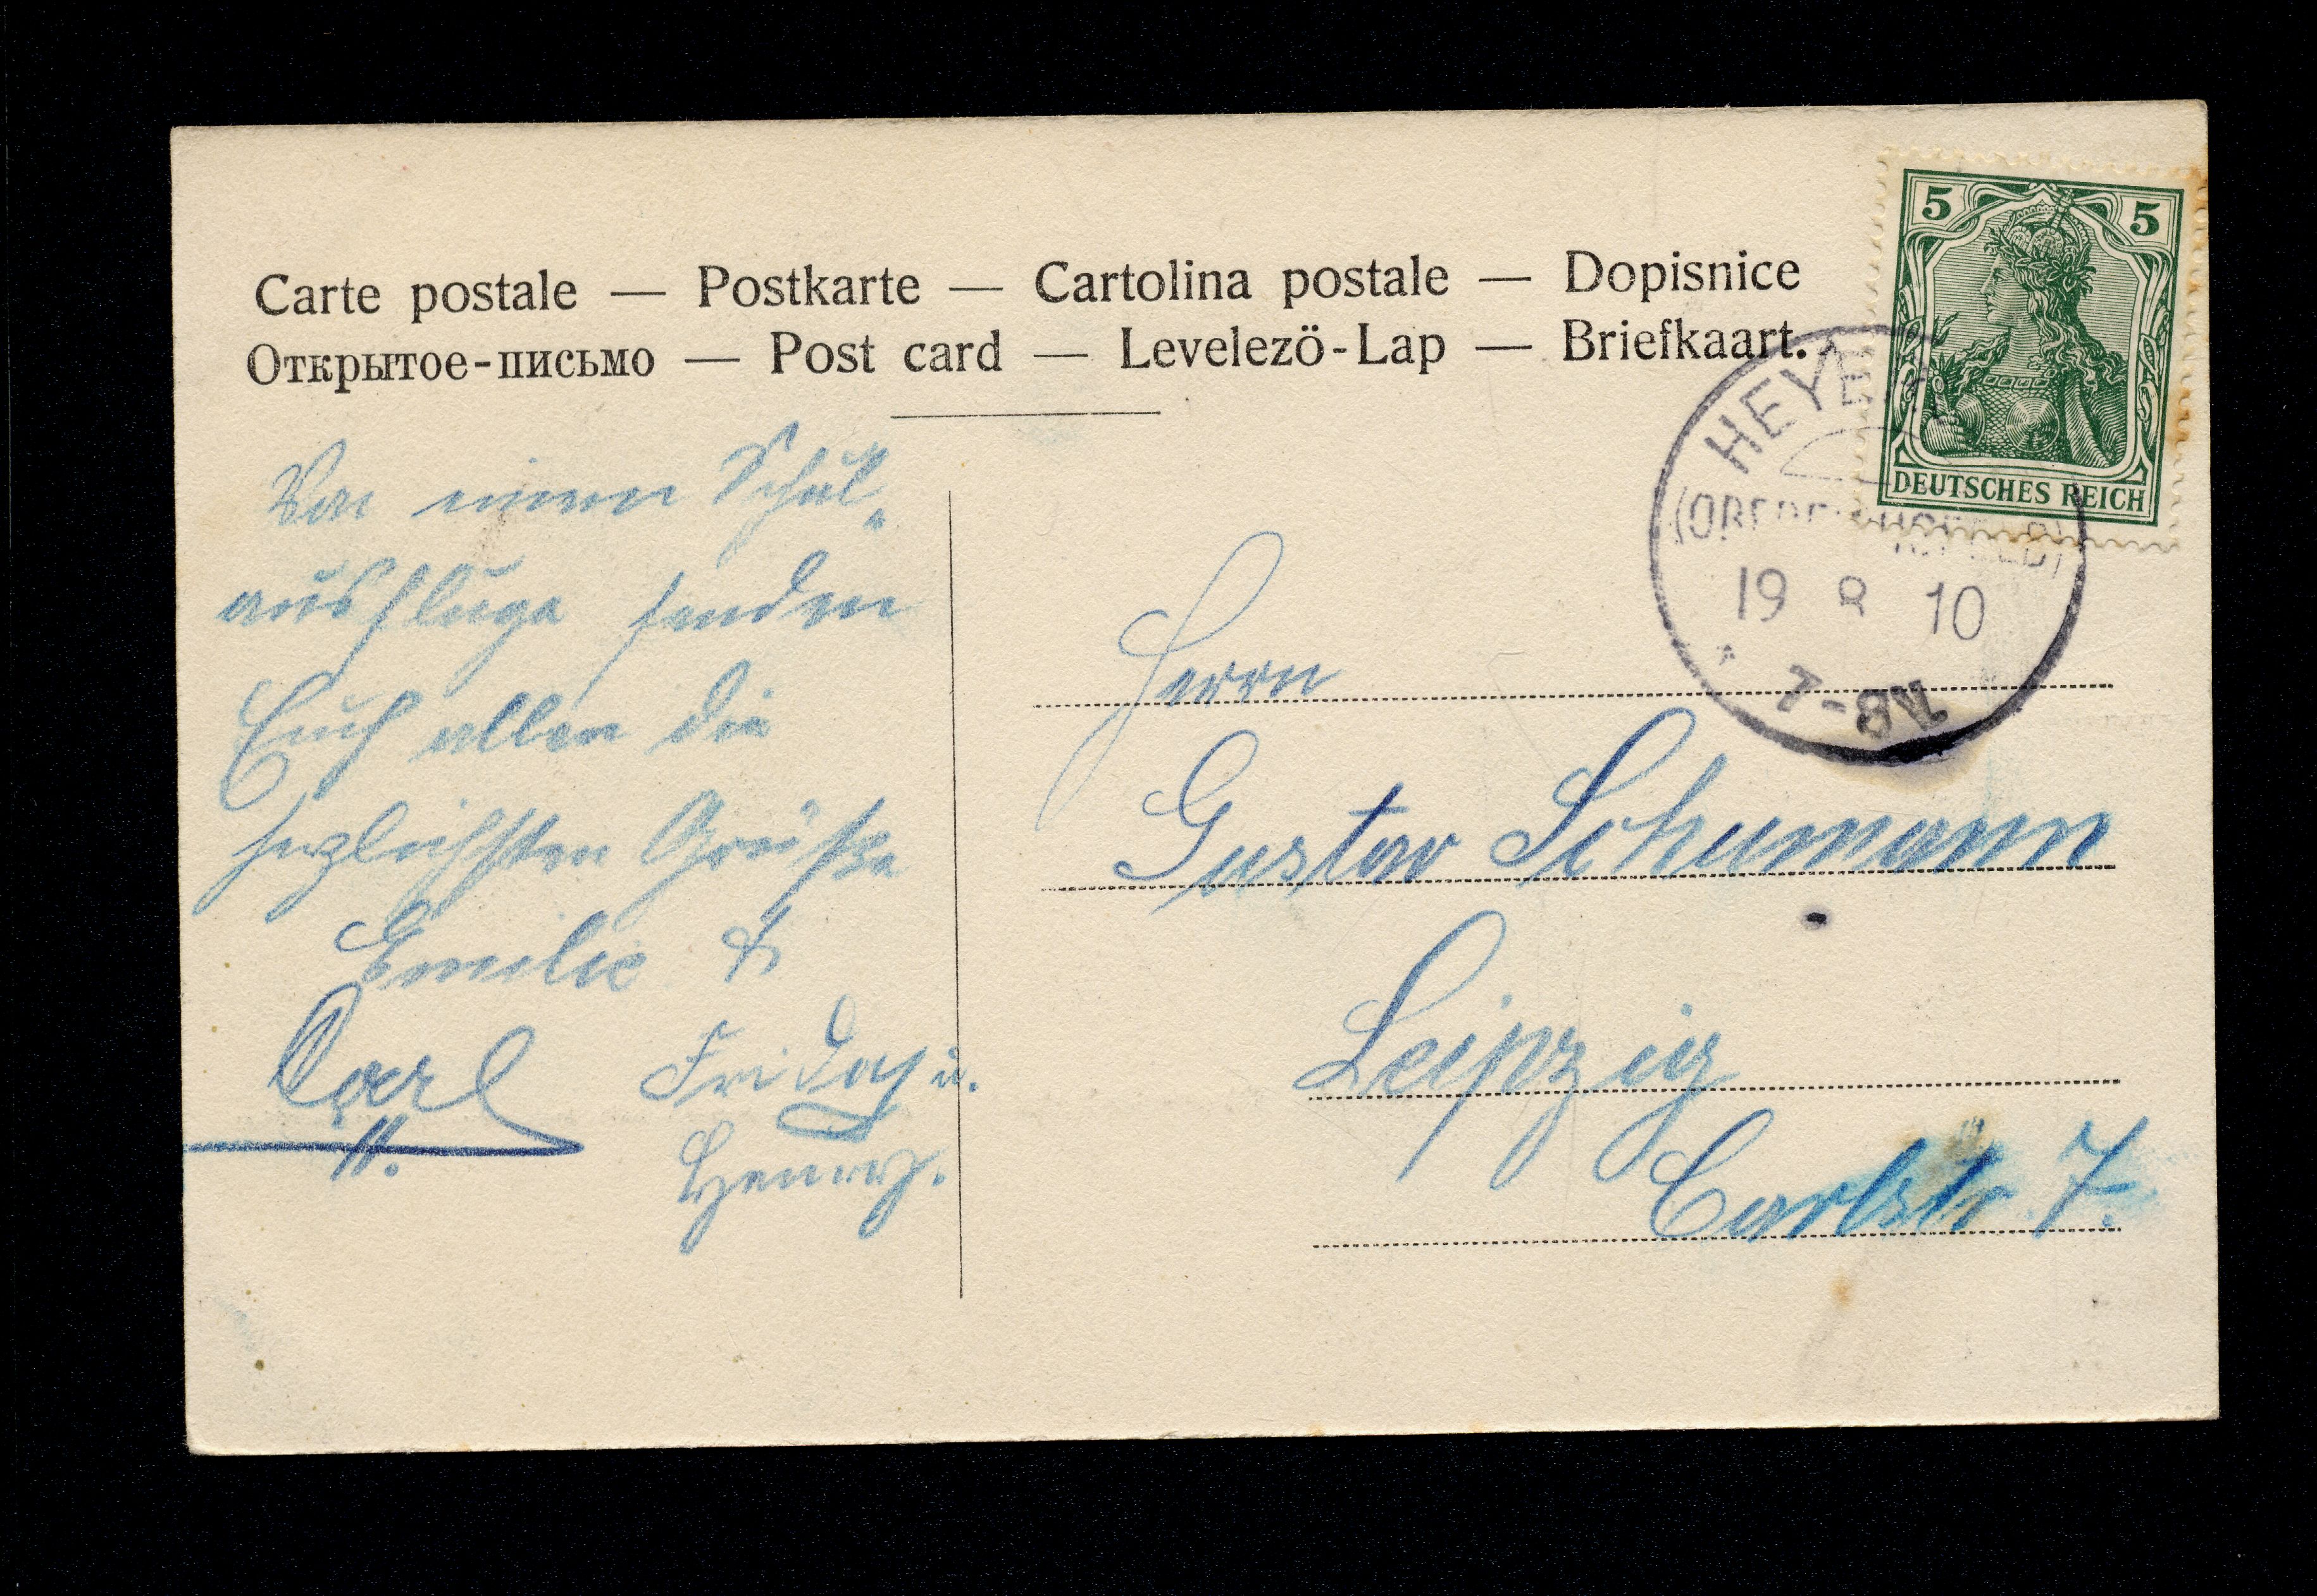 Carte postale — Postkarte — Cartolina postale — Dopisnice
Открытое-письмо — Post card — Levelezö-Lap — Briefkaart.
5 5
DEUTSCHES REICH
HEYE
19 8 10
7-8N
Von einem Schul„
ausfluge senden
Euch allen die
herzlichsten Grüße
Emilie &
Carl
Fridas u.
Henny.
Herrn
Gustav Schumann
Leipzig
Carlstr 7.